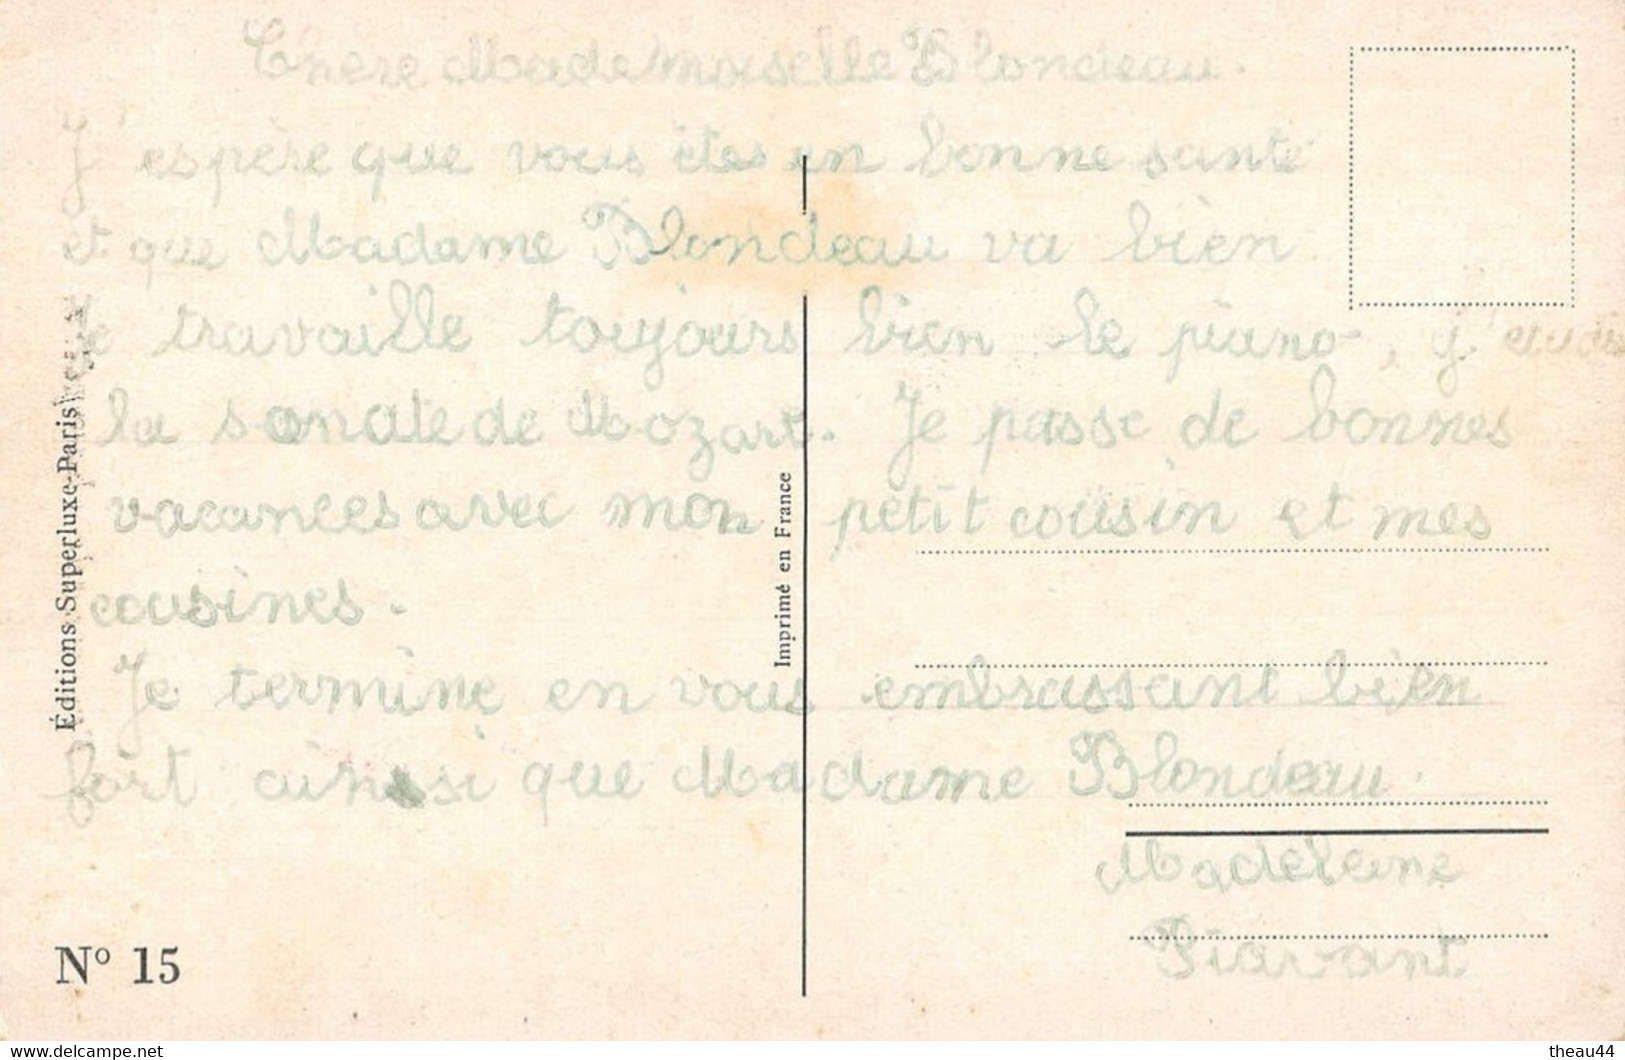 Chère Mademoiselle Blondeau.
J'espère que vous êtes en bonne santé
et que Madame Blondeau va bien
Je travaille toujours bien le piano, j'étudie
la sonate de Mozart. Je passe de bonnes
vacances avec mon petit cousin et mes
cousines.
Je termine en vous embrassant bien
fort ainsi que Madame Blondeau.
Madeleine
Piavant
Éditions Superluxe-Paris
Imprimé en France
N° 15
theau44